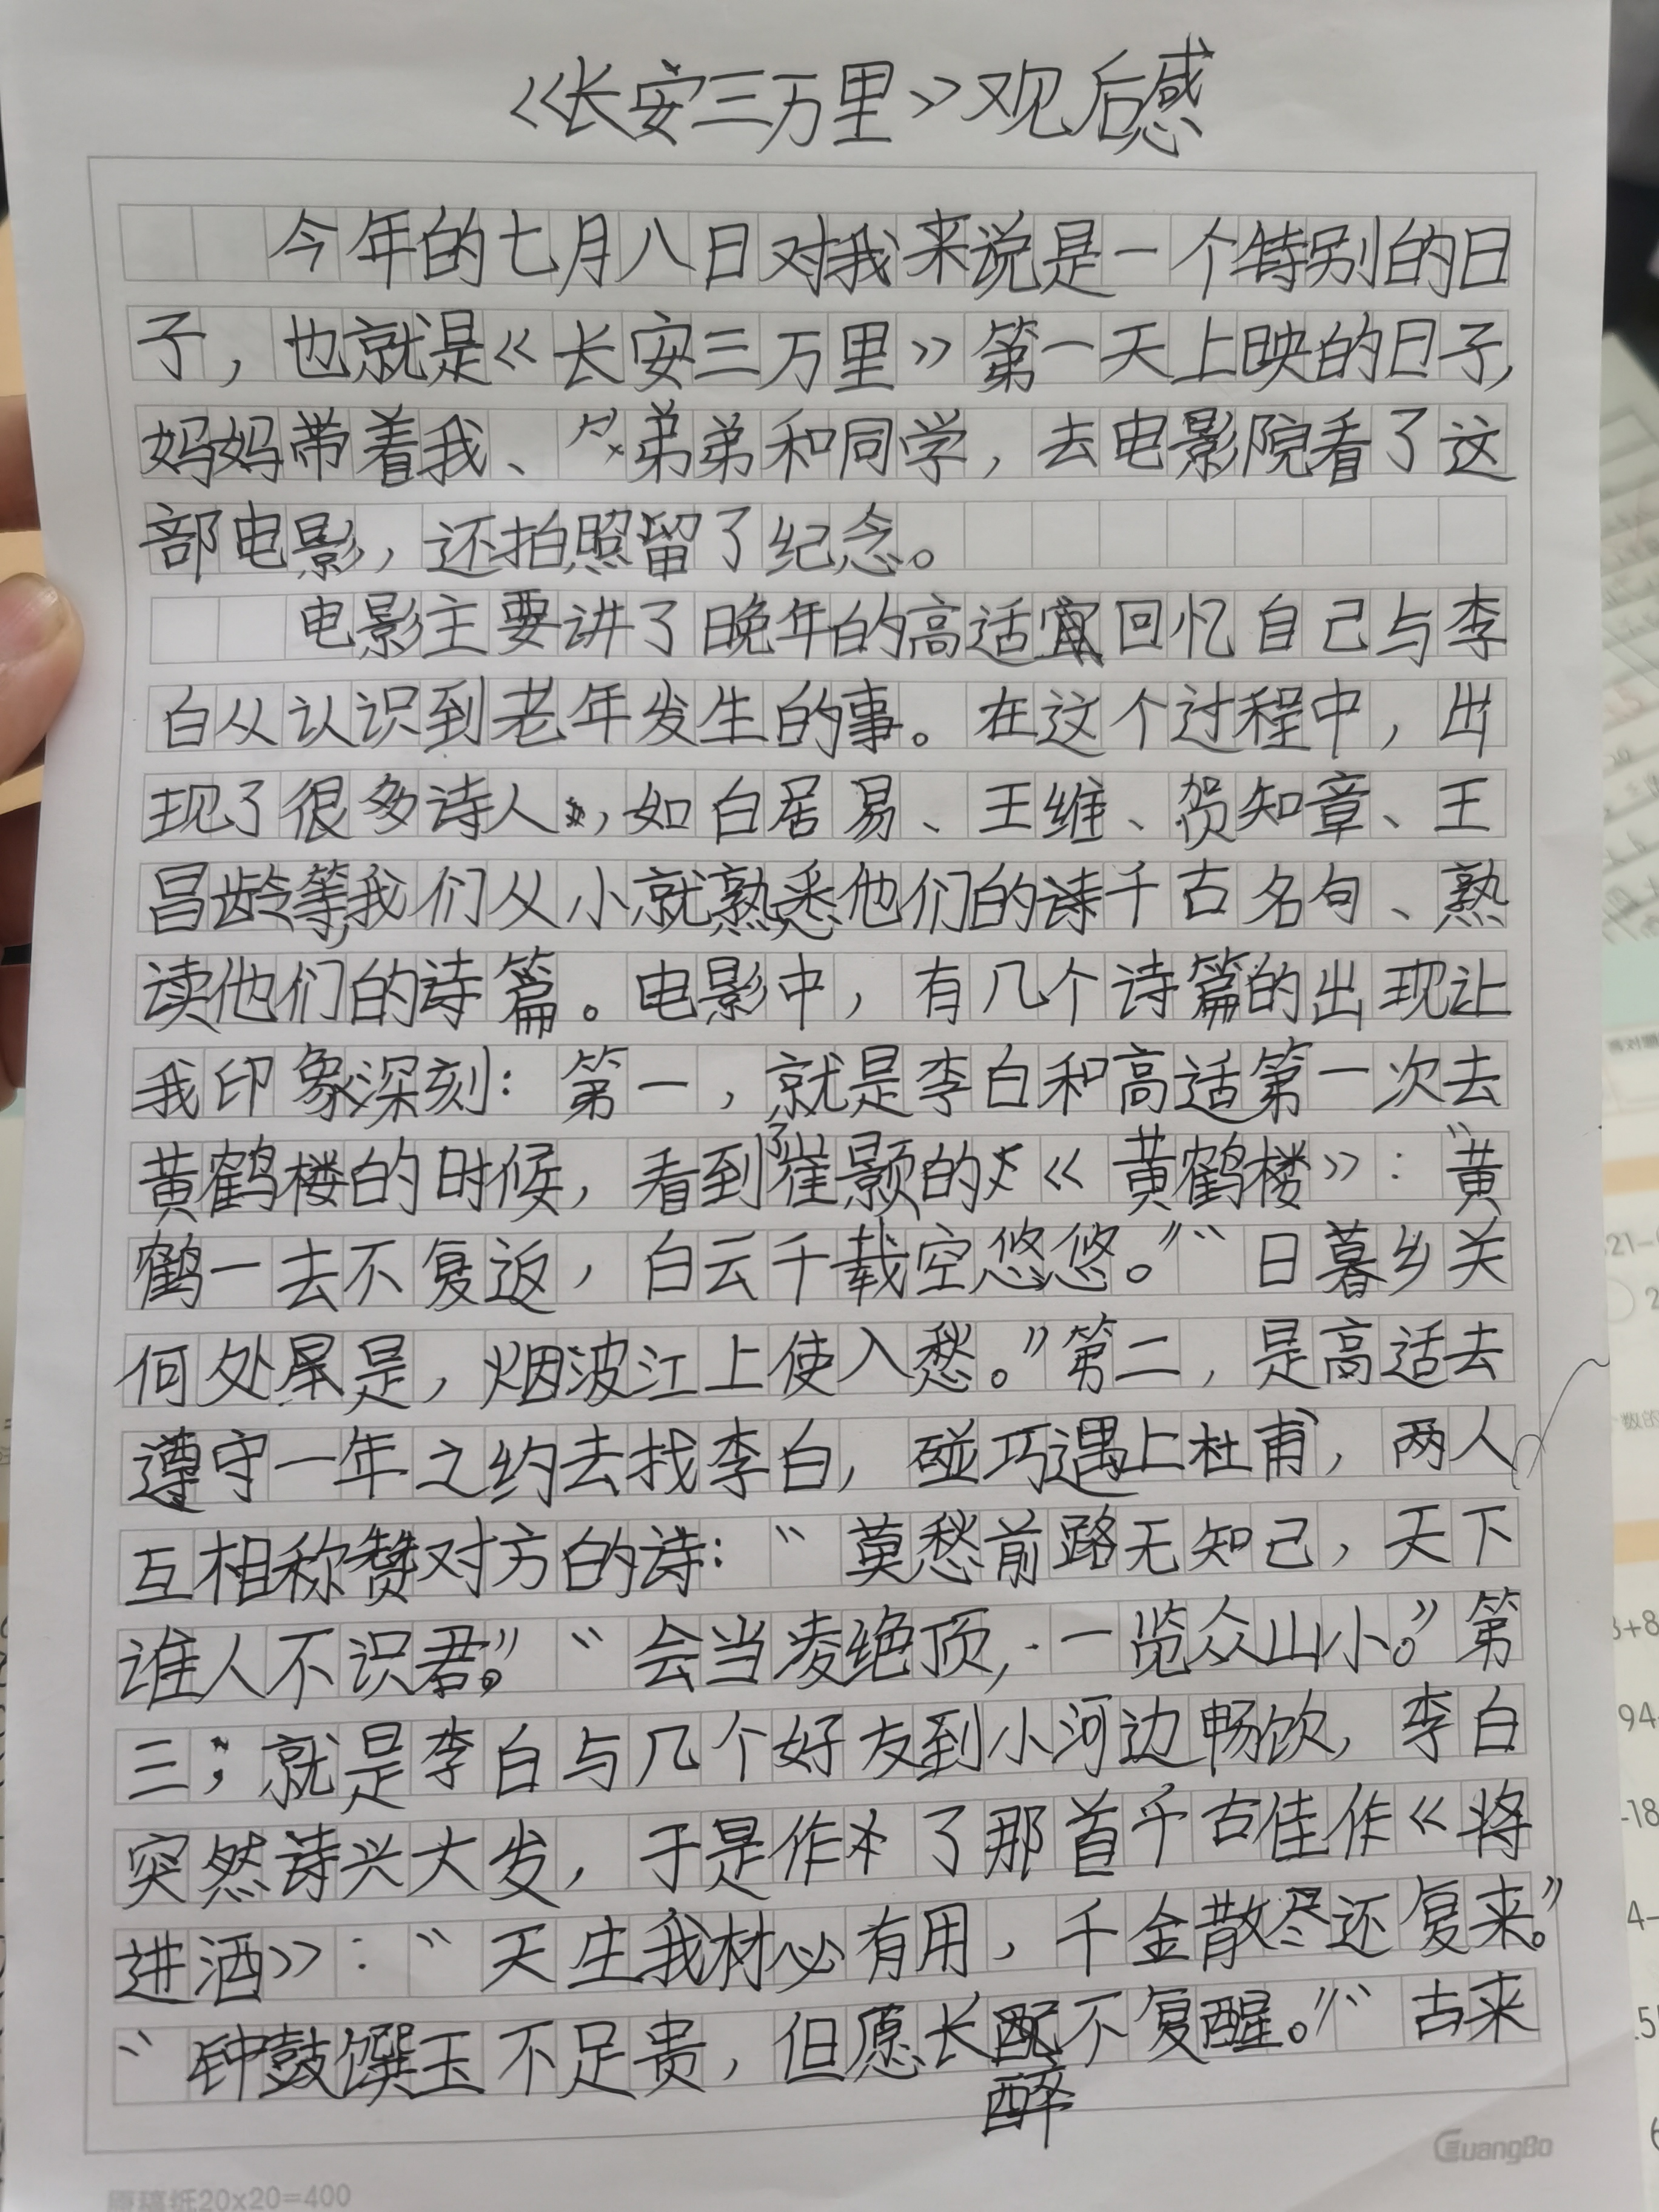 《长安三万里》观后感
今年的七月八日对我来说是一个特别的日
子，也就是《长安三万里》第一天上映的日子，
妈妈带着我、弟弟和同学，去电影院看了这
部电影，还拍照留了纪念。
电影主要讲了晚年的高适回忆自己与李
白从认识到老年发生的事。在这个过程中，出
现了很多诗人，如白居易、王维、贺知章、王
昌龄等，我们从小就熟悉他们的诗千古名句、熟
读他们的诗篇。电影中，有几个诗篇的出现让
我印象深刻：第一，就是李白和高适第一次去
黄鹤楼的时候，看到崔颢的《黄鹤楼》：“黄
鹤一去不复返，白云千载空悠悠。”“日暮乡关
何处是，烟波江上使入愁。”第二，是高适去
遵守一年之约去找李白，碰巧遇上杜甫，两人
互相称赞对方的诗：“莫愁前路无知己，天下
谁人不识君。”“会当凌绝顶，一览众山小。”第
三，就是李白与几个好友到小河边畅饮，李白
突然诗兴大发，于是作了那首千古佳作《将
进酒》：“天生我材必有用，千金散尽还复来。”
“钟鼓馔玉不足贵，但愿长醉不复醒。”“古来
GuangBo
原稿纸20x20=400